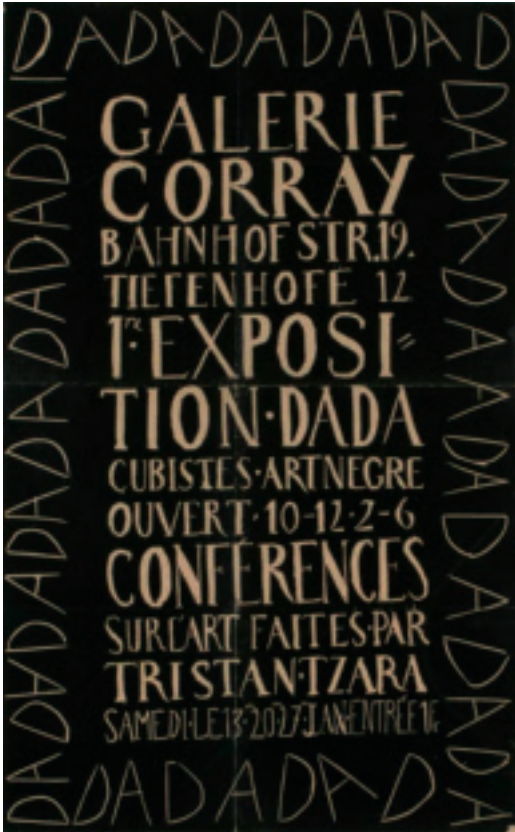 DADADADADAD
GALERIE
CORRAY
BAHNHOFSTR.19.
TIEFENHOFE 12
1re EXPOSI=
TION·DADA
CUBISTES·ART NEGRE
OUVERT·10-12·2-6
CONFÉRENCES
SUR L'ART FAITES·PAR
TRISTAN·TZARA
SAMEDI·LE 13·20 27·JAN ENTRÉE 1
DADADADAD